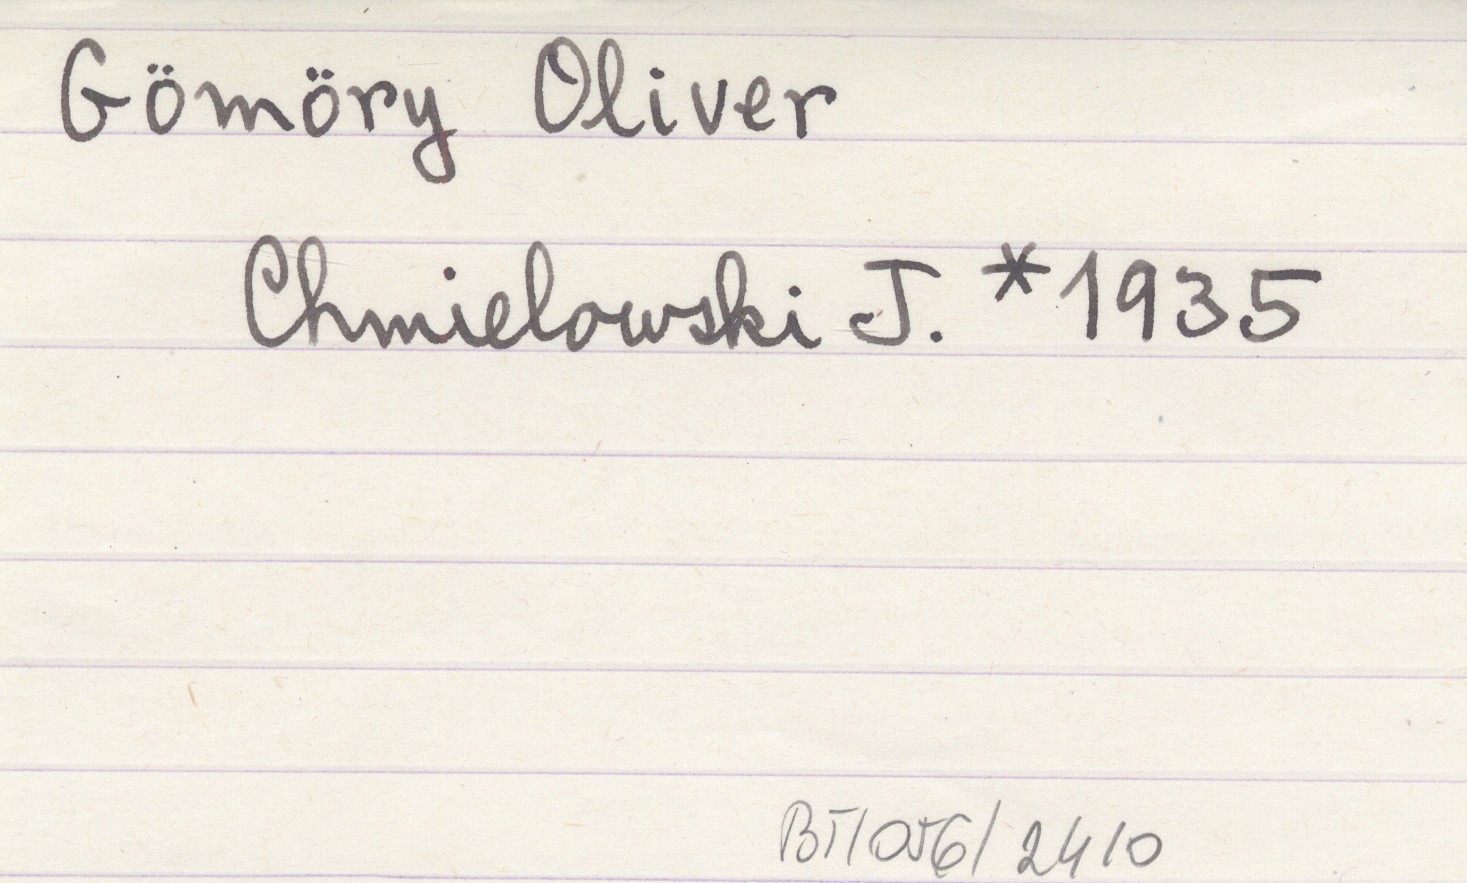 Gömöry Oliver
Chmielowski J. *1935
BT/056/2410